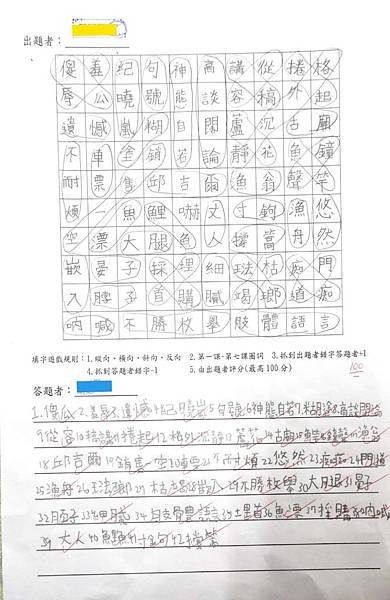 出題者：
傻 羞 紀 句 神 高 講 從 捲 格
辱 瓜 曉 號 態 談 容 稿 外 起
遺 憾 嵐 糊 自 闊 蘆 沉 古 廟
不 車 全 銷 若 論 靜 花 魚 鐘
耐 票 售 邱 吉 爾 漁 翁 聲 竿
煩 一 魚 鯉 嚇 丈 寸 鉤 漁 悠
空 漂 大 腿 魚 人 撐 篙 舟 然
嵌 晏 子 採 細 琺 枯 痴 門
入 脖 子 首 購 膩 竭 瑯 道 痴
吶 喊 不 勝 枚 舉 肢 體 語 言
填字遊戲規則：1.縱向、橫向、斜向、反向 2.第一課-第七課圈詞 3.抓到出題者錯字答題者+1
4.抓到答題者錯字-1 5.由出題者評分(最高100分)
100
答題者：
1.傻瓜 2.羞辱 3.遺憾 4.紀曉嵐 5.句號 6.神態自若 7.糊塗 8.高談闊論
9.從容 10.講稿 11.捲起 12.格外 沉靜 13.蘆花 14.古廟 漁翁
18.邱吉爾 19.銷售一空 20.車票 21.不耐煩 22.悠然 23.痴痴 24.門道
25.漁舟 26.琺瑯 27.枯竭 28.嵌入 29.不勝枚舉 30.大腿 31.晏子
32.脖子 33.細膩 34.肢體語言 首 36.魚漂 37.採購 吶喊
39.大人 撐篙